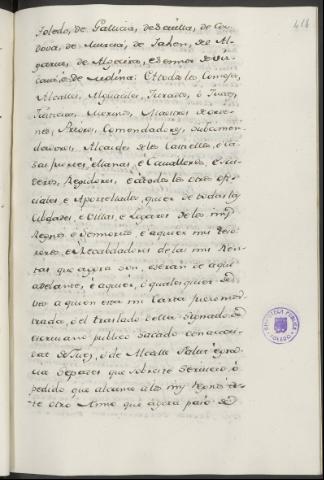 416
Toledo, de Gallicia, de Sevilla, de Cor-
dova, de Murcia, de Jahen, de Al-
garve, de Algecira, e Sennor de Viz-
caia, e de Molina: A todos los Conzejos,
Alcalles, Alguaciles, Jurados, e Jueces,
Justicias, Merinos, Maestros de Orde-
nes, Priores, Comendadores, Subcomen-
dadores, Alcaides de los Castiellos, e Ca-
sas fuertes, e llanas, e Cavalleros, e Escu-
deros, Regidores, e a todos los otros ofi-
ciales e Aportellados, quier de todas las
Cibdades, e Villas, e Lugares de los mis
Regnos e Sennorios e a quier mis Teso-
reros, e Recabdadores de las mis Ren-
tas que agora son, e seran de aqui
adelante, e a quier, o qualesquier de
vos a quien esta mi Carta fuere mos-
trada, o el traslado della signado de
escrivano publico sacado con autori-
dat de Juez, o de Alcalle Salut e gra-
cia Sepades que sobre el Servicio o
pedido que alcanze a los mis Regnos es-
te otro Anno que agora paso de
BIBLIOTECA PUBLICA
TOLEDO